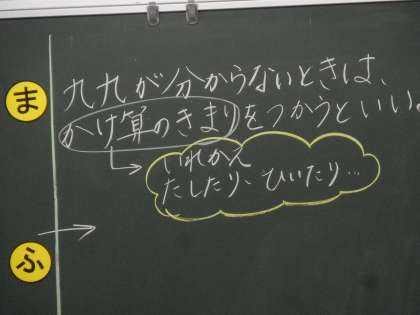 ま
九九が分からないときは、
かけ算のきまりをつかうといい。
いれかん
たしたり、ひいたり…
ふ